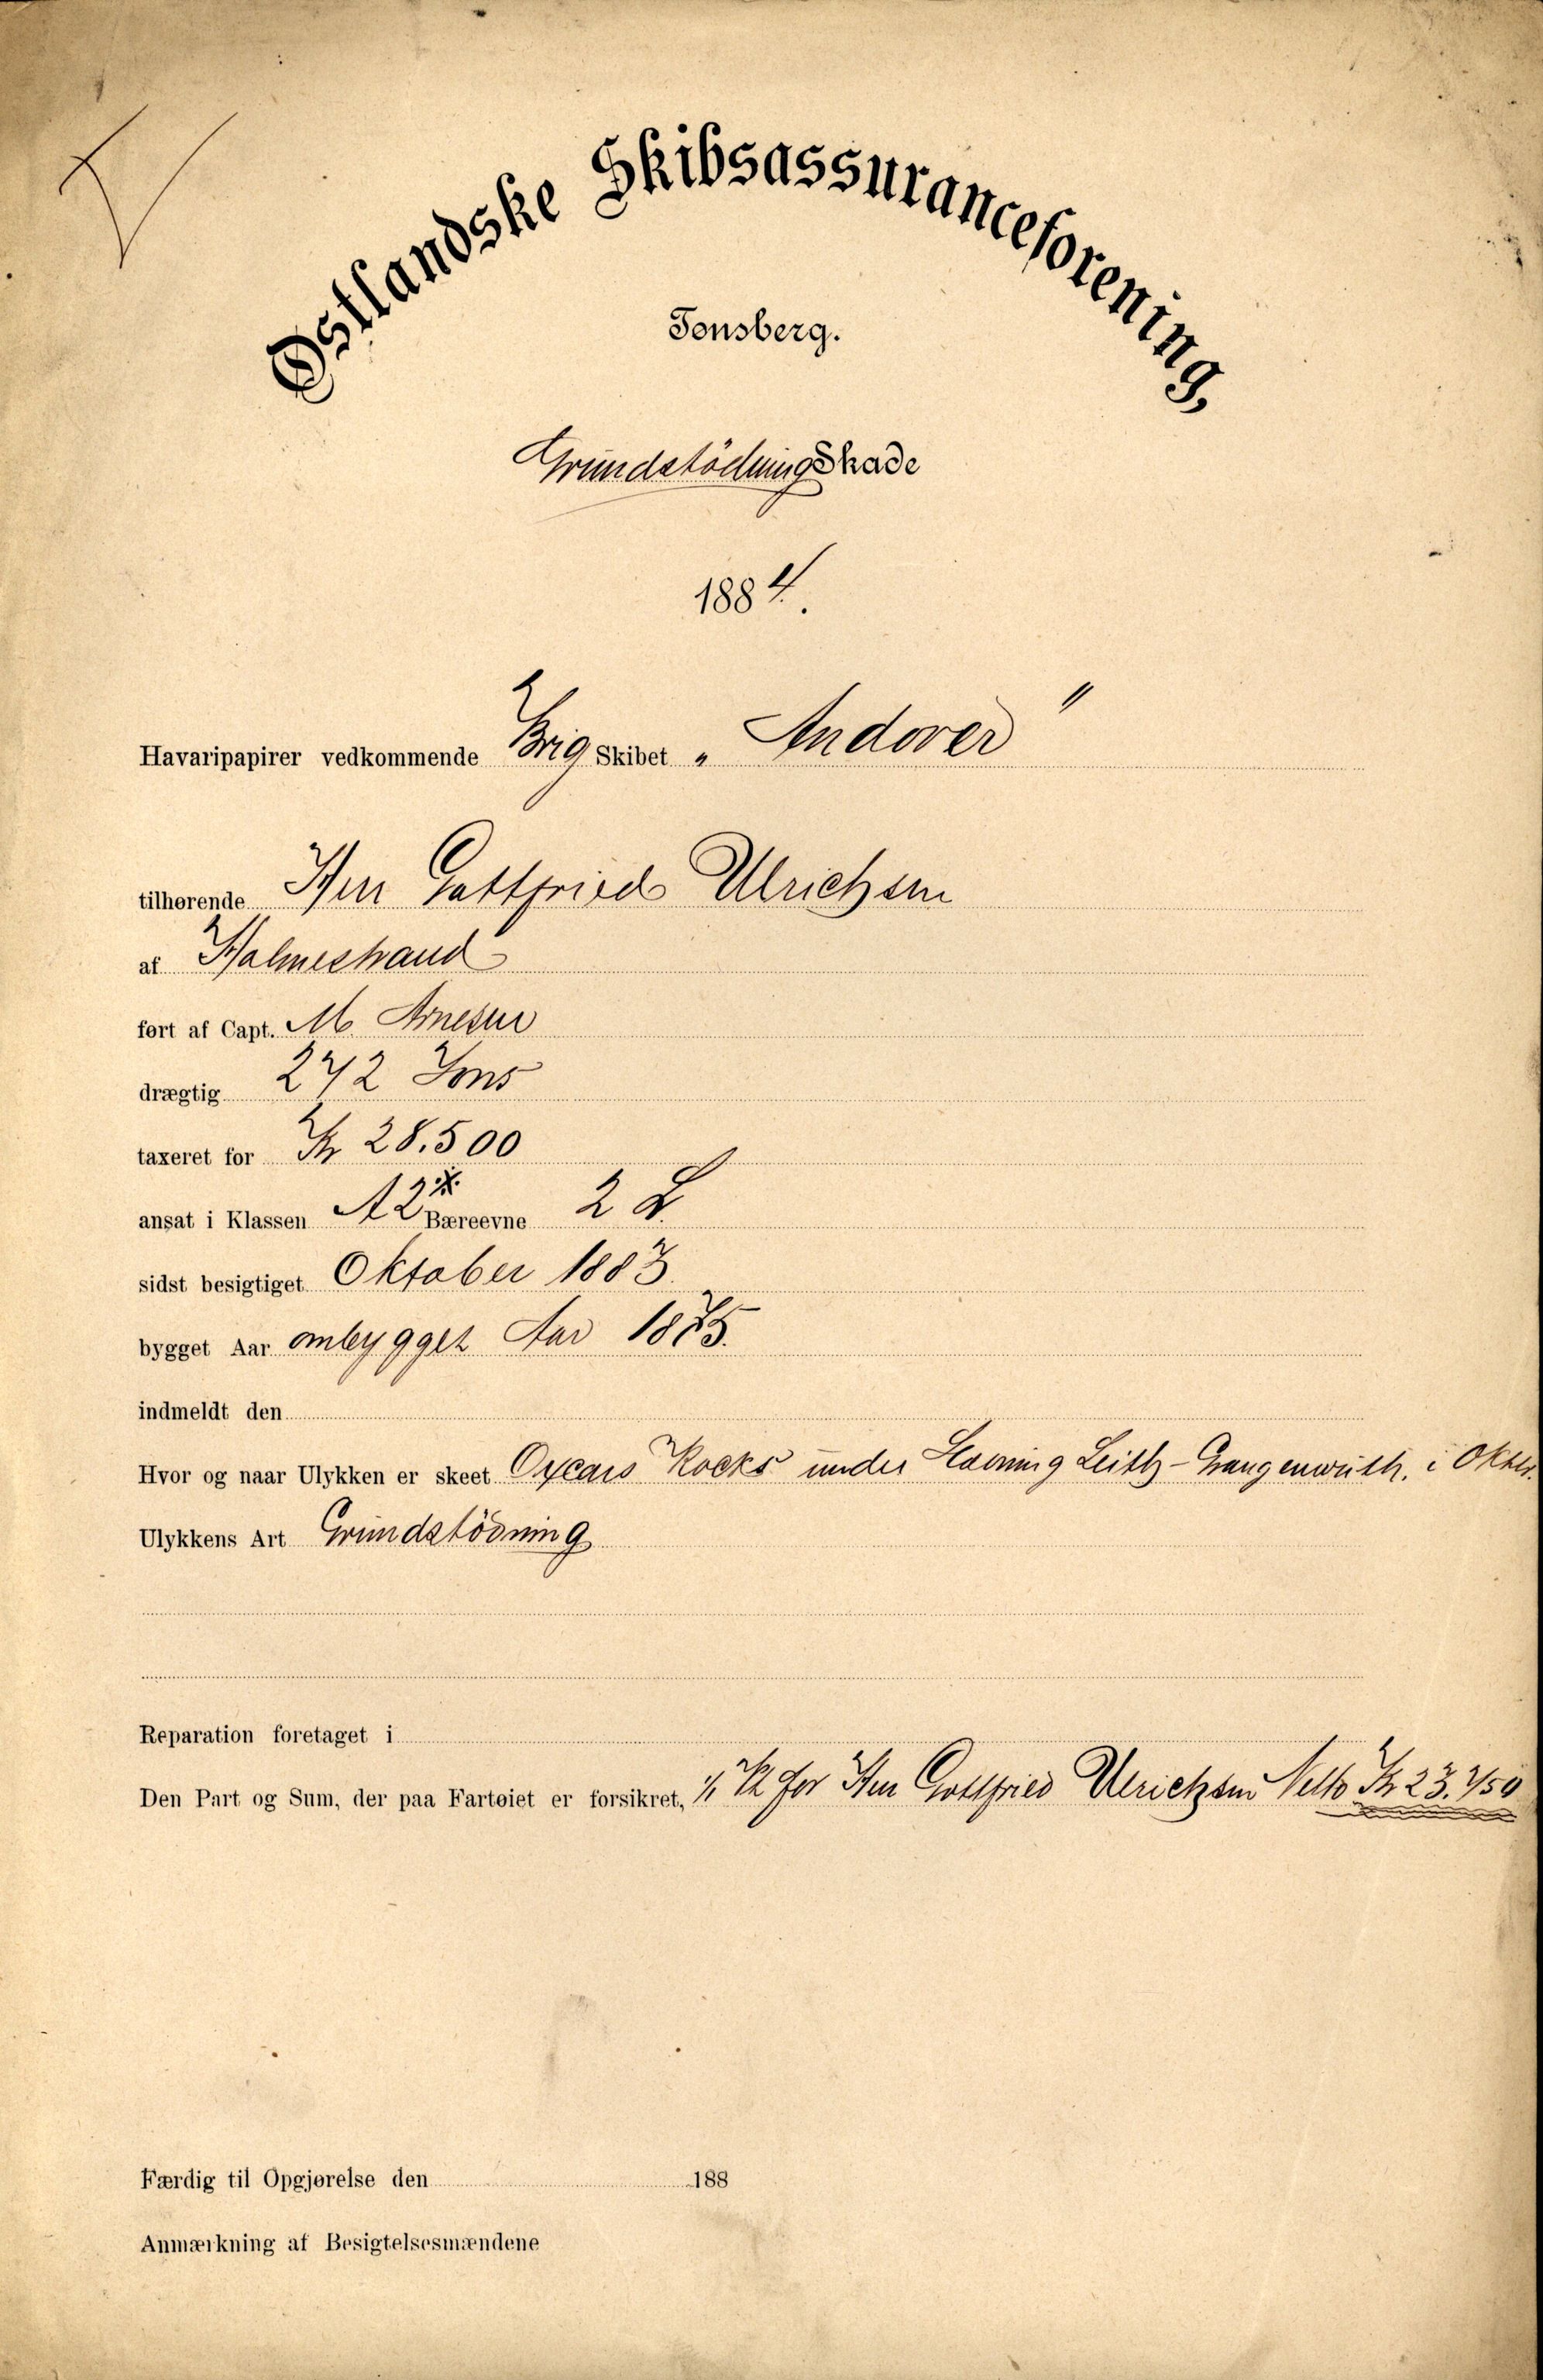 Østlandske Skibsassuranceforening,
Tønsberg.
Grundstödnings Skade
1884.
Havaripapirer vedkommende Brig Skibet „ Andover "
tilhørende Herr Gottfried Ulrichsen
af Holmestrand
ført af Capt. M. Arnesen
drægtig 272 Tons
taxeret for Kr 28.500
ansat i Klassen A2 Bæreevne 2 L
sidst besigtiget Oktober 1883.
bygget Aar ombygget Aar 1875.
indmeldt den
Hvor og naar Ulykken er skeet Oxcars Rocks under Leith - i Oktbr.
Ulykkens Art Grundstödning
Reparation foretaget i
Den Part og Sum, der paa Fartøiet er forsikret, 1/1 Pt for Herr Gottfried Ulrichsen Netto Kr 23.750
Færdig til Opgjørelse den 188
Anmærkning af Besigtelsesmændene